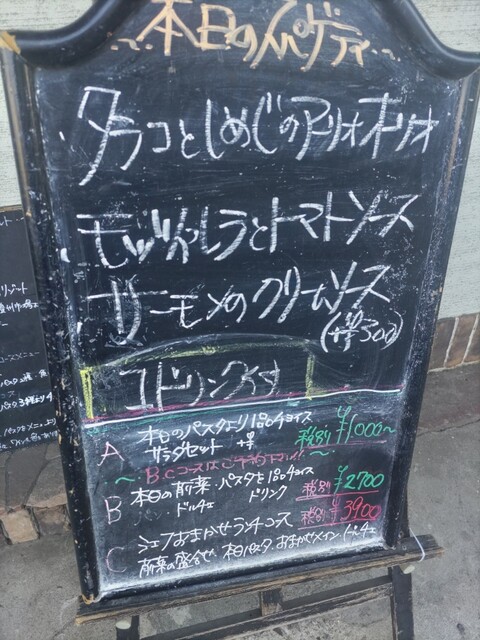 本日のスパゲティ
タラコとしめじのアーリオオーリオ
モッツァレラとトマトソース
サーモンのクリームソース
(+¥300)
1ドリンク付
A 本日のパスタより1品チョイス
サラダセット 税別 ¥1000~
~B.Cコースはご予約下さい~
B 本日の前菜・パスタを1品チョイス
ドルチェ ドリンク 税別 ¥2700
税別 ¥3900
C シェフおまかせランチコース
前菜の盛合せ、本日パスタ、おまかせメイン ドルチェ